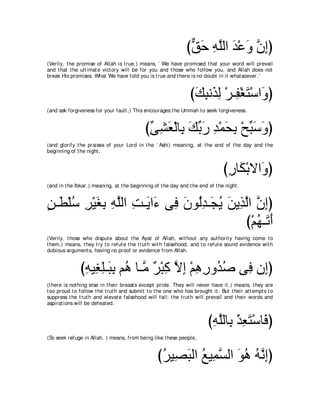 (إِنَّ وَعْدَ اللَّهِ حَقٌّ)
(Verily, the promise of Allah is true,) means, ` We have promised that your word will prevail and that the ultimate victory will be for you and those who follow you, and Allah does not break His promises. What We have told you is true and there is no doubt in it whatsoever.'
(وَاسْتَغْفِرْ لِذَنبِكَ)
(and ask forgiveness for your fault,) This encourages the Ummah to seek forgiveness.
(وَسَبِّحْ بِحَمْدِ رَبِّكَ بِالْعَشِىِّ)
(and glorify the praises of your Lord in the `Ashi) meaning, at the end of the day and the beginning of the night,
(وَالابْكَارِ)
(and in the Ibkar.) meaning, at the beginning of the day and the end of the night.
(إِنَّ الَّذِينَ يُجَـدِلُونَ فِى ءَايَـتِ اللَّهِ بِغَيْرِ سُلْطَـنٍ أَتَـهُمْ)
(Verily, those who dispute about the Ayat of Allah, without any authority having come to them,) means, they try to refute the truth with falsehood, and to refute sound evidence with dubious arguments, having no proof or evidence from Allah.
(إِن فِى صُدُورِهِمْ إِلاَّ كِبْرٌ مَّـا هُم بِبَـلِغِيهِ)
(there is nothing else in their breasts except pride. They will never have it.) means, they are too proud to follow the truth and submit to the one who has brought it. But their attempts to suppress the truth and elevate falsehood will fail; the truth will prevail and their words and aspirations will be defeated.
(فَاسْتَعِذْ بِاللَّهِ)
(So seek refuge in Allah. ) means, from being like these people,
(إِنَّهُ هُوَ السَّمِيعُ الْبَصِيرُ)